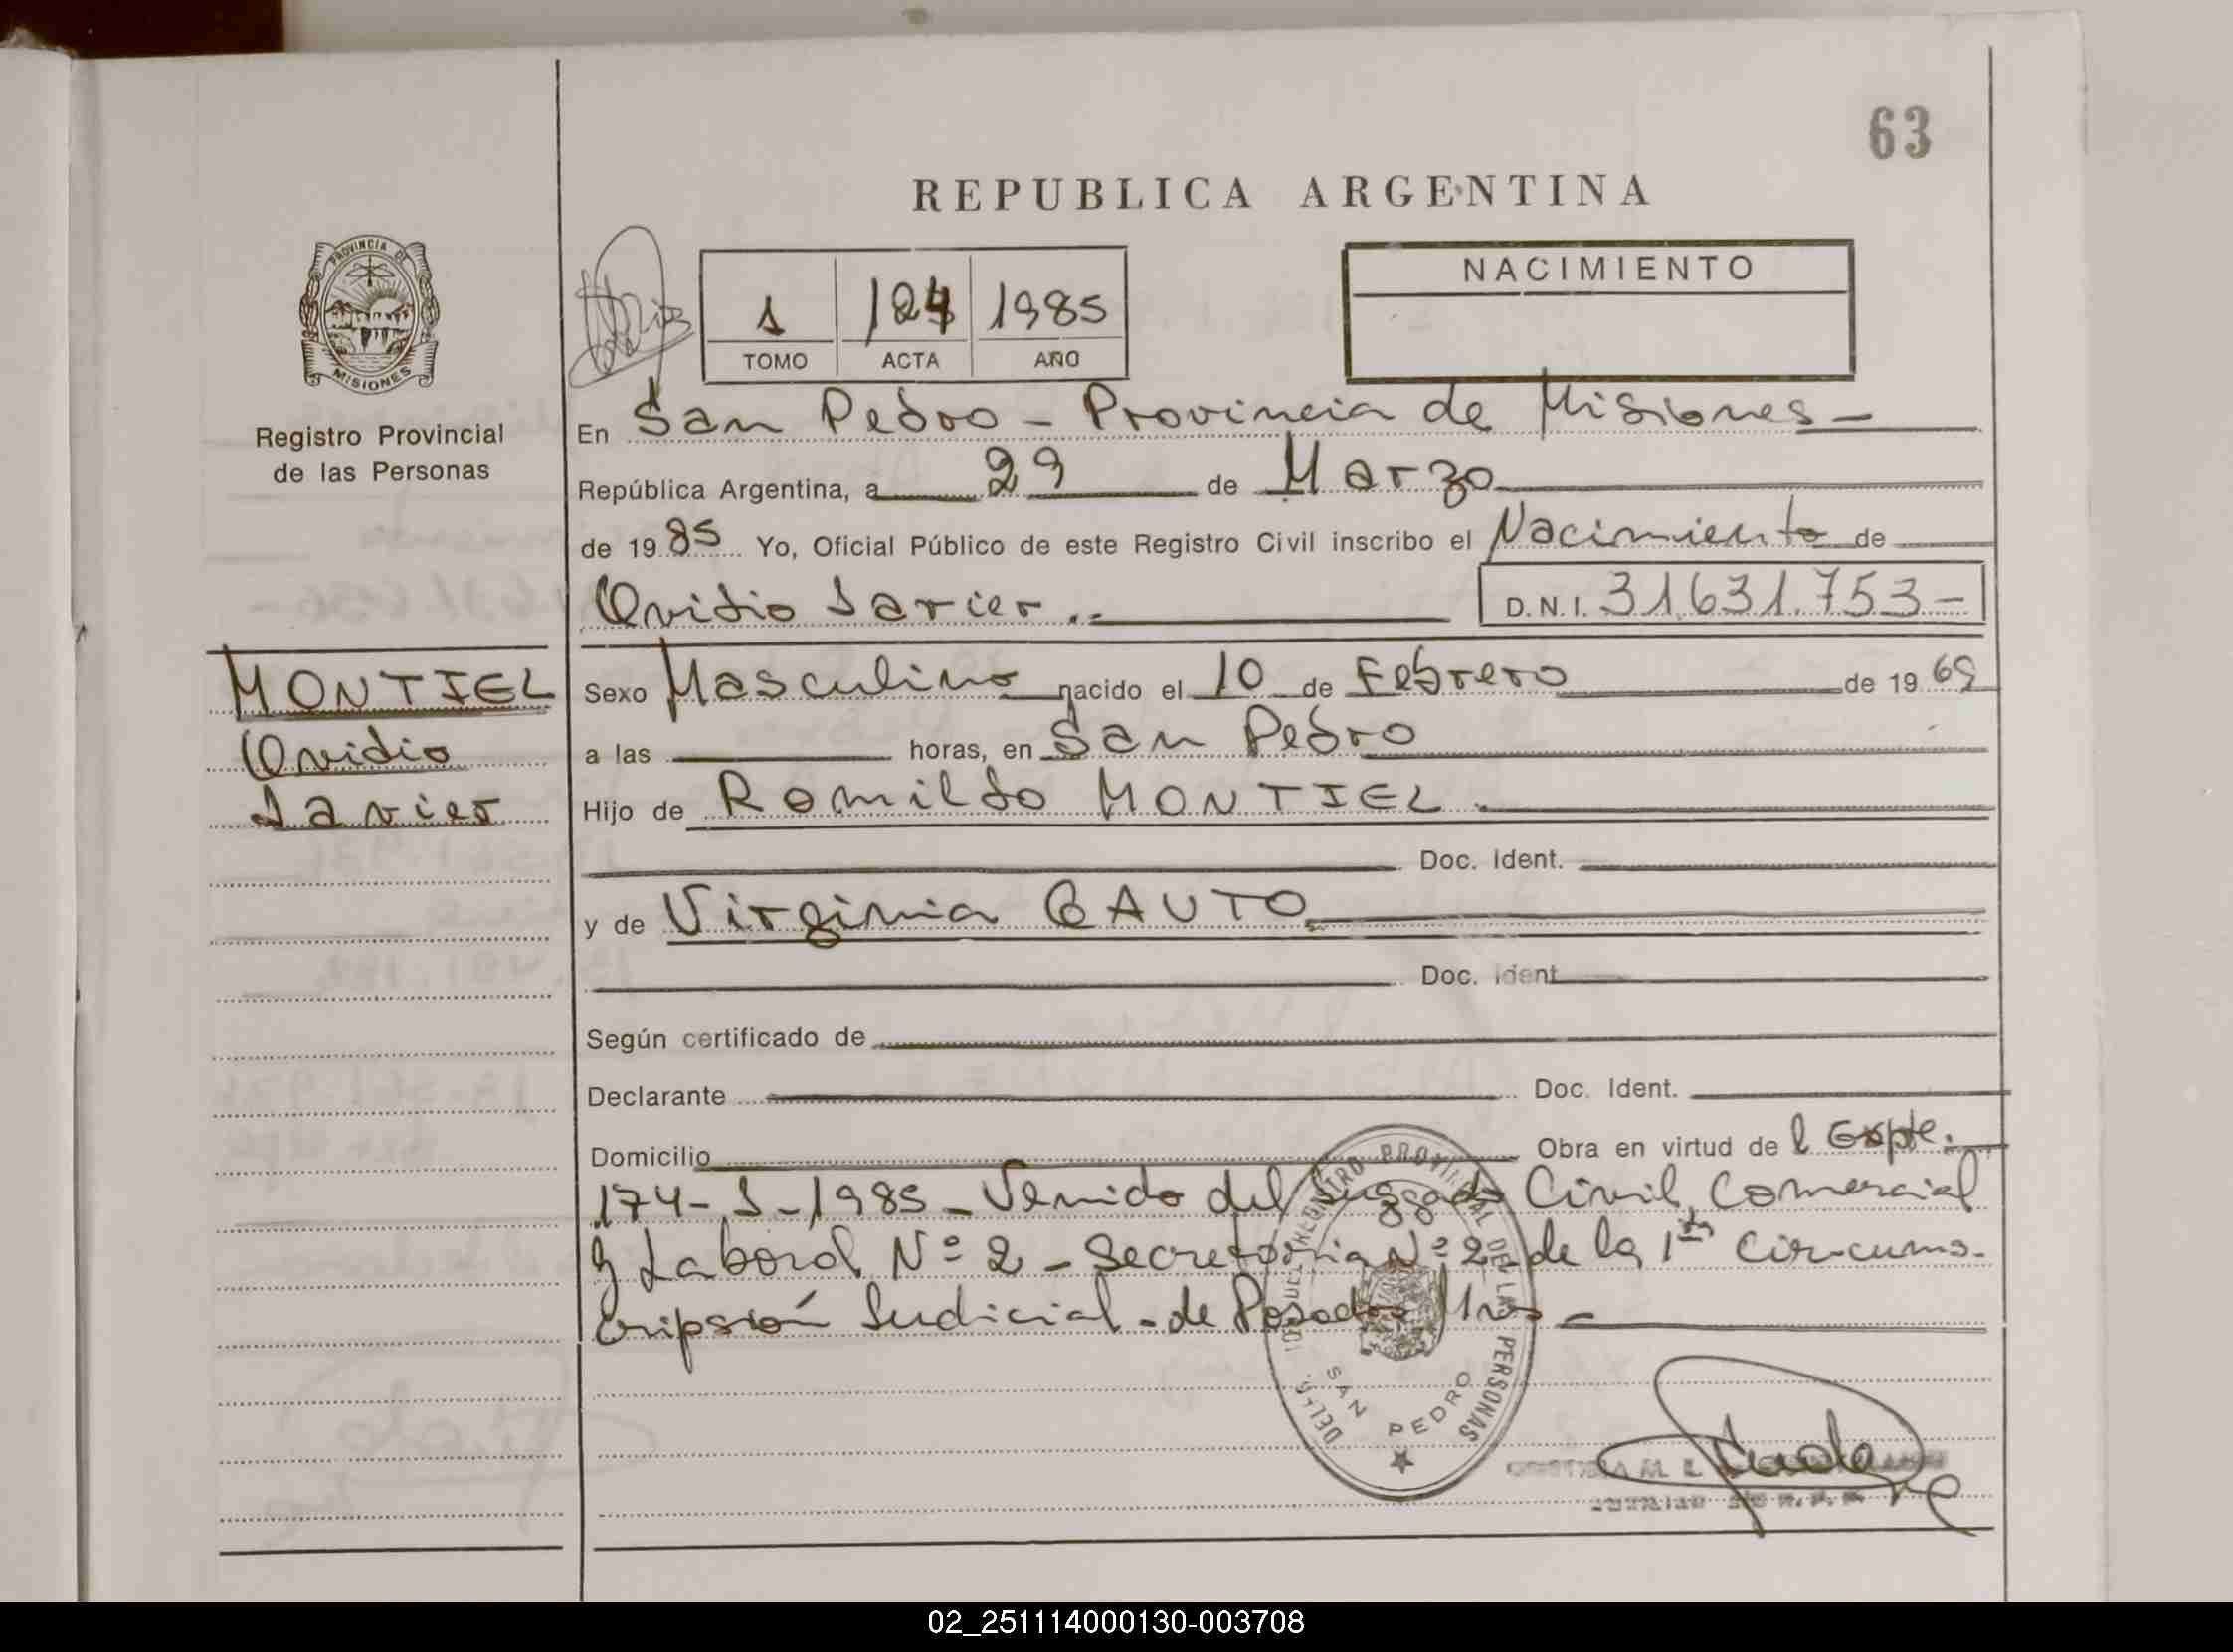 63
REPUBLICA ARGENTINA
PROVINCIA DE
MISIONES
Registro Provincial
de las Personas
1 124 1985
TOMO ACTA AÑO
NACIMIENTO
En San Pedro - Provincia de Misiones -
República Argentina, a 29 de Marzo
de 1985 Yo, Oficial Público de este Registro Civil inscribo el Nacimiento de
Ovidio Javier .-
D.N.I. 31.631.753-
MONTIEL
Ovidio
Javier
Sexo Masculino nacido el 10 de Febrero de 1969
a las horas, en San Pedro
Hijo de Romildo MONTIEL.
Doc. Ident.
y de Virginia GAUTO
Doc. Ident.
Según certificado de
Declarante Doc. Ident.
Domicilio Obra en virtud de l Expte.
174-J-1985 - Venido del Juzgado Civil, Comercial
y Laboral Nº 2 - Secretaria Nº 2 de la 1ra Circuns-
cripsión Judicial - de Posadas Mnes -
REGISTRO PROVINCIAL DE LAS PERSONAS
SAN PEDRO
02_251114000130-003708